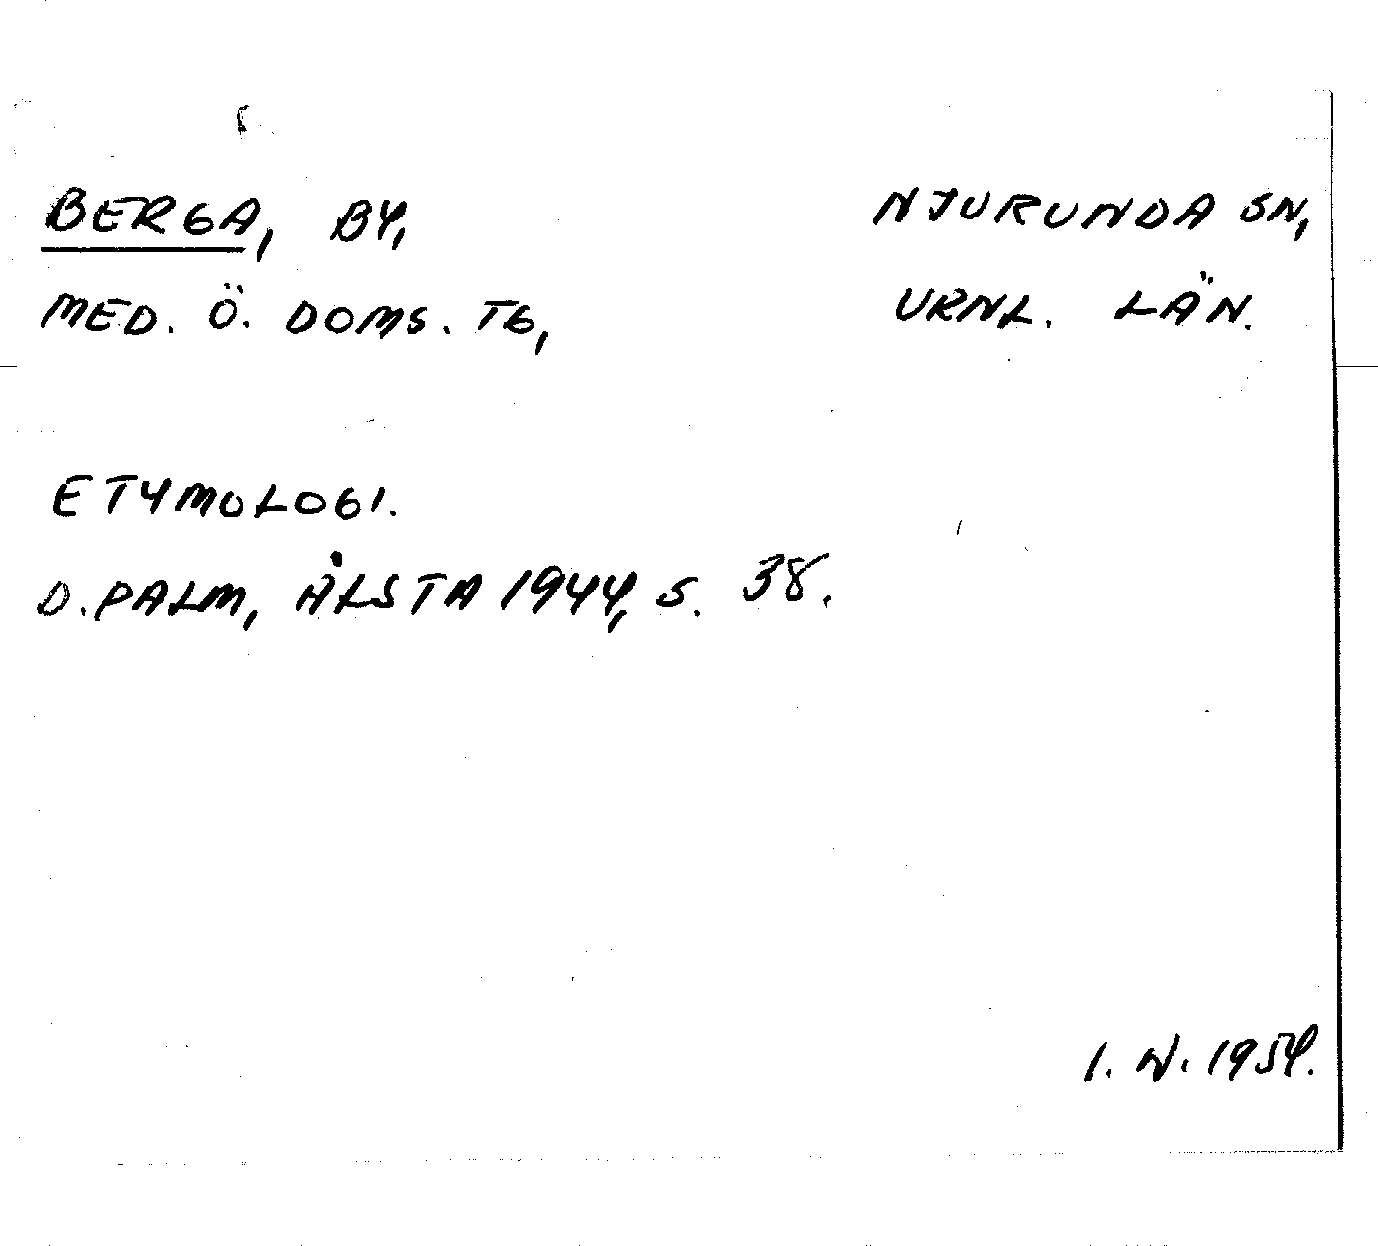 BERGA, BY,
NJURUNDA SN,
MED. Ö. DOMS. TG,
VRNL. LÄN.
ETYMOLOGI.
D. PALM, ÅLSTA 1944, S. 38.
I. N. 1954.